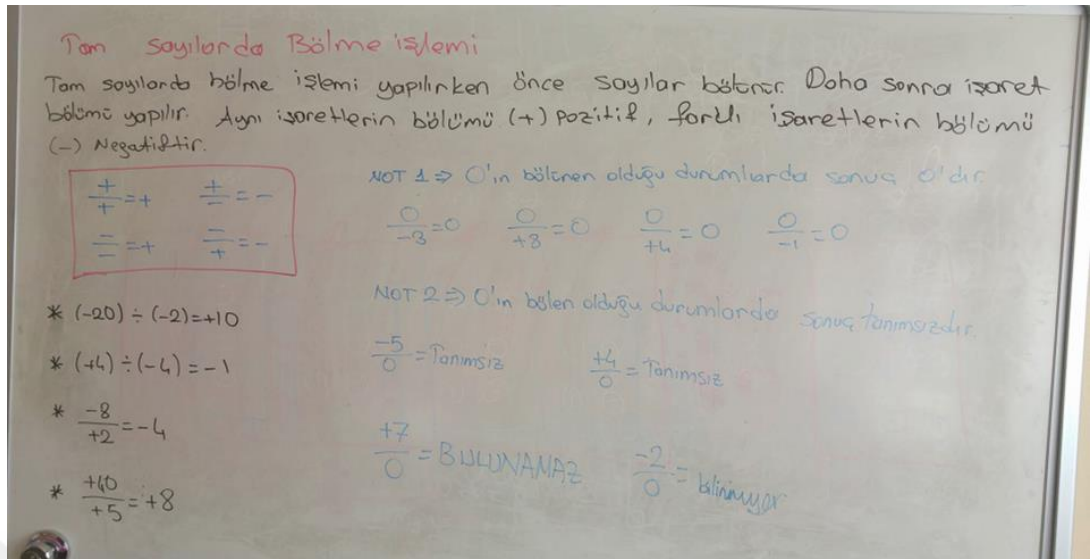 Tam sayılarda Bölme işlemi
Tam sayılarda bölme işlemi yapılırken önce sayılar bölünür. Daha sonra işaret
bölümü yapılır. Aynı işaretlerin bölümü (+) pozitif, farklı işaretlerin bölümü
(-) Negatiftir.
+/+ = + +/- = -
-/- = + -/+ = -
* (-20) ÷ (-2) = +10
* (+4) ÷ (-4) = -1
* -8/+2 = -4
* +40/+5 = +8
NOT 1 ⇒ 0'ın bölünen olduğu durumlarda sonuç 0'dır.
0/-3 = 0 0/+8 = 0 0/+4 = 0 0/-1 = 0
NOT 2 ⇒ 0'ın bölen olduğu durumlarda sonuç tanımsızdır.
-5/0 = Tanımsız +4/0 = Tanımsız
+7/0 = BULUNAMAZ -2/0 = bilinmiyor